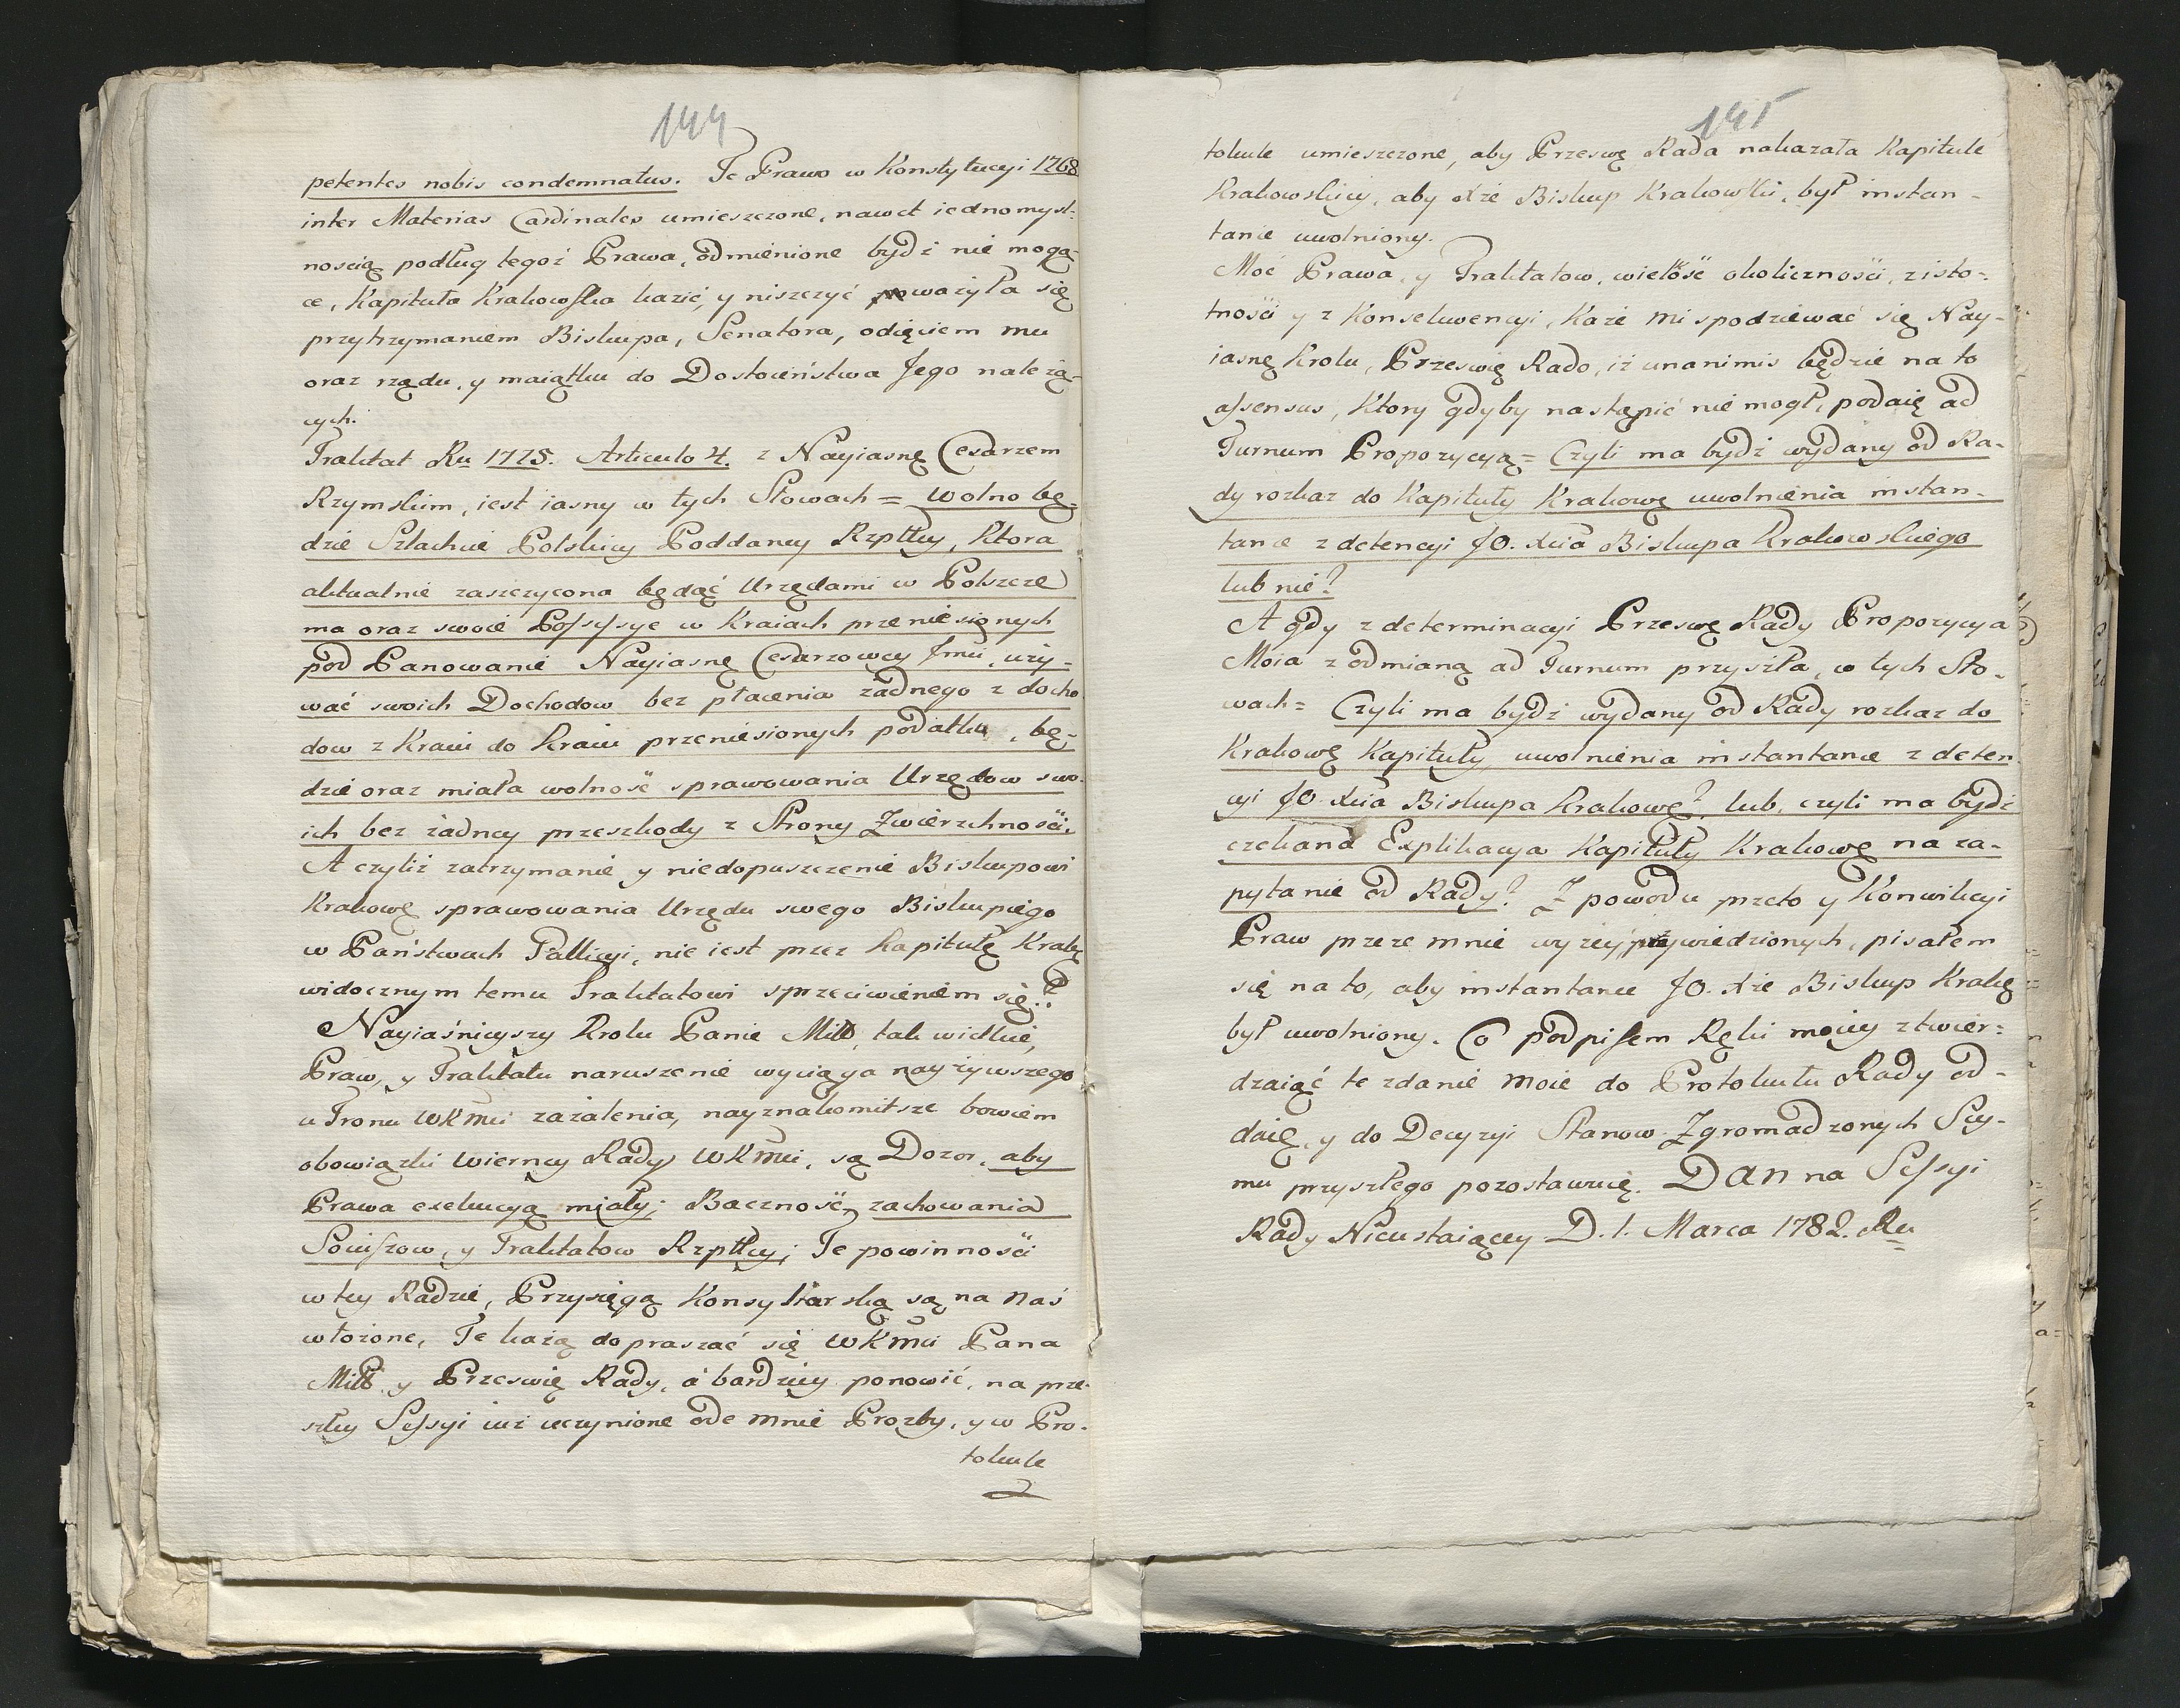 144
petentes nobis condemnatus. Te Prawo w Konstytucyi 1768
inter Materias Cardinales umieszczone, nawet iednomysl-
noscią podług tegoż Prawa, odmienione bydź nie mogą-
ce, Kapituła Krakowska kazić, y niszczyć poważyła się
przytrzymaniem Biskupa, Senatora, odięciem mu
oraz rządu, y maiątku do Dostoieństwa Jego należą-
cych.
Traktat Ru 1775. Articulo 4. z Nayiasnę Cesarzem
Rzymskim, iest iasny w tych Słowach = Wolno bę-
dzie Szlachcie Polskiey Poddaney Rzptey, Ktora
aktualnie zaszczycona będąć Urzędami w Polszcze
ma oraz swoie Possessye w Kraiach przeniesionych
pod Panowanie Nayiasnę Cesarzowey Jmci, uży-
wać swoich Dochodow bez płacenia żadnego z docho
dow z Kraiu do Kraiu przeniesionych podatku, bę-
dzie oraz miała wolność sprawowania Urzędow swo-
ich bez żadney przeszkody z Strony Zwierzchności.
A czyliż zatrzymanie y niedopuszczenie Biskupowi
Krakowę sprawowania Urzędu swego Biskupiego
w Państwach Gallicyi, nie iest przez Kapitułę Krakę
widocznym temu Traktatowi sprzeciwieniem się.?
Nayiaśnieyszy Krolu Panie Miłł, tak wielkie,
Praw, y Traktatu naruszenie wyciąga nayżywszego
u Tronu WKMci zażalenia, nayznakomitsze bowiem
obowiązki Wierney Rady WKMci, są Dozor, aby
Prawa exekucyą miały; Baczność, zachowania
Soiuszow, y Traktatow Rzptey; Te powinności
w tey Radzie, Przysięgą Konsyliarską są na Naś
włożone, Te każą dopraszać się WKMci Pana
Miłł. y Przeswię Rady, á bardziey ponowić, na prze-
szłey Sessyi iuż uczynione ode mnie Prozby, y w Pro-
tokule

145
tokule umieszczone, aby Przeswę Rada nakazała Kapitule
Krakowskiey, aby Xże Biskup Krakowski, był instan-
tanie uwolniony.
Moć Prawa, y Traktatow, wielość okoliczności, z isto-
tności y z Konsekwencyi, Każe mi spodziewać się Nay-
iasnę Krolu, Przeswię Rado, iż unanimis będzie na to
assensus, Ktory gdyby nastąpić nie mogł, podaię ad
Turnum Propozycyą = Czyli ma bydź wydany od Ra-
dy rozkaz do Kapituły Krakowę uwolnienia instan-
tanie z detencyi JO. Xcia Biskupa Krakowskiego
lub nie?
A gdy z determinacyi Przeswę Rady Propozycya
Moia z odmianą ad Turnum przyszła, w tych Sło-
wach = Czyli ma bydź wydany od Rady rozkaz do
Krakowę Kapituły uwolnienia instantanie z deten
cyi JO. Xcia Biskupa Krakowę? lub, czyli ma bydź
czekana Explikacya Kapituły Krakowę na za-
pytanie od Rady? Z powodu przeto y Konwikcyi
Praw przeze mnie wyżey przywiedzionych, pisałem
się na to, aby instantanie JO. Xże Biskup Krakę
był uwolniony. Co podpisem Ręki moiey ztwier=
dzaiąć te zdanie moie do Protokułu Rady od-
daię, y do Decyzyi Stanow Zgromadzonych Sey-
mu przyszłego pozostawuię. DAN na Sessyi
Rady Nieustaiącey D. 1. Marca 1782. Ru